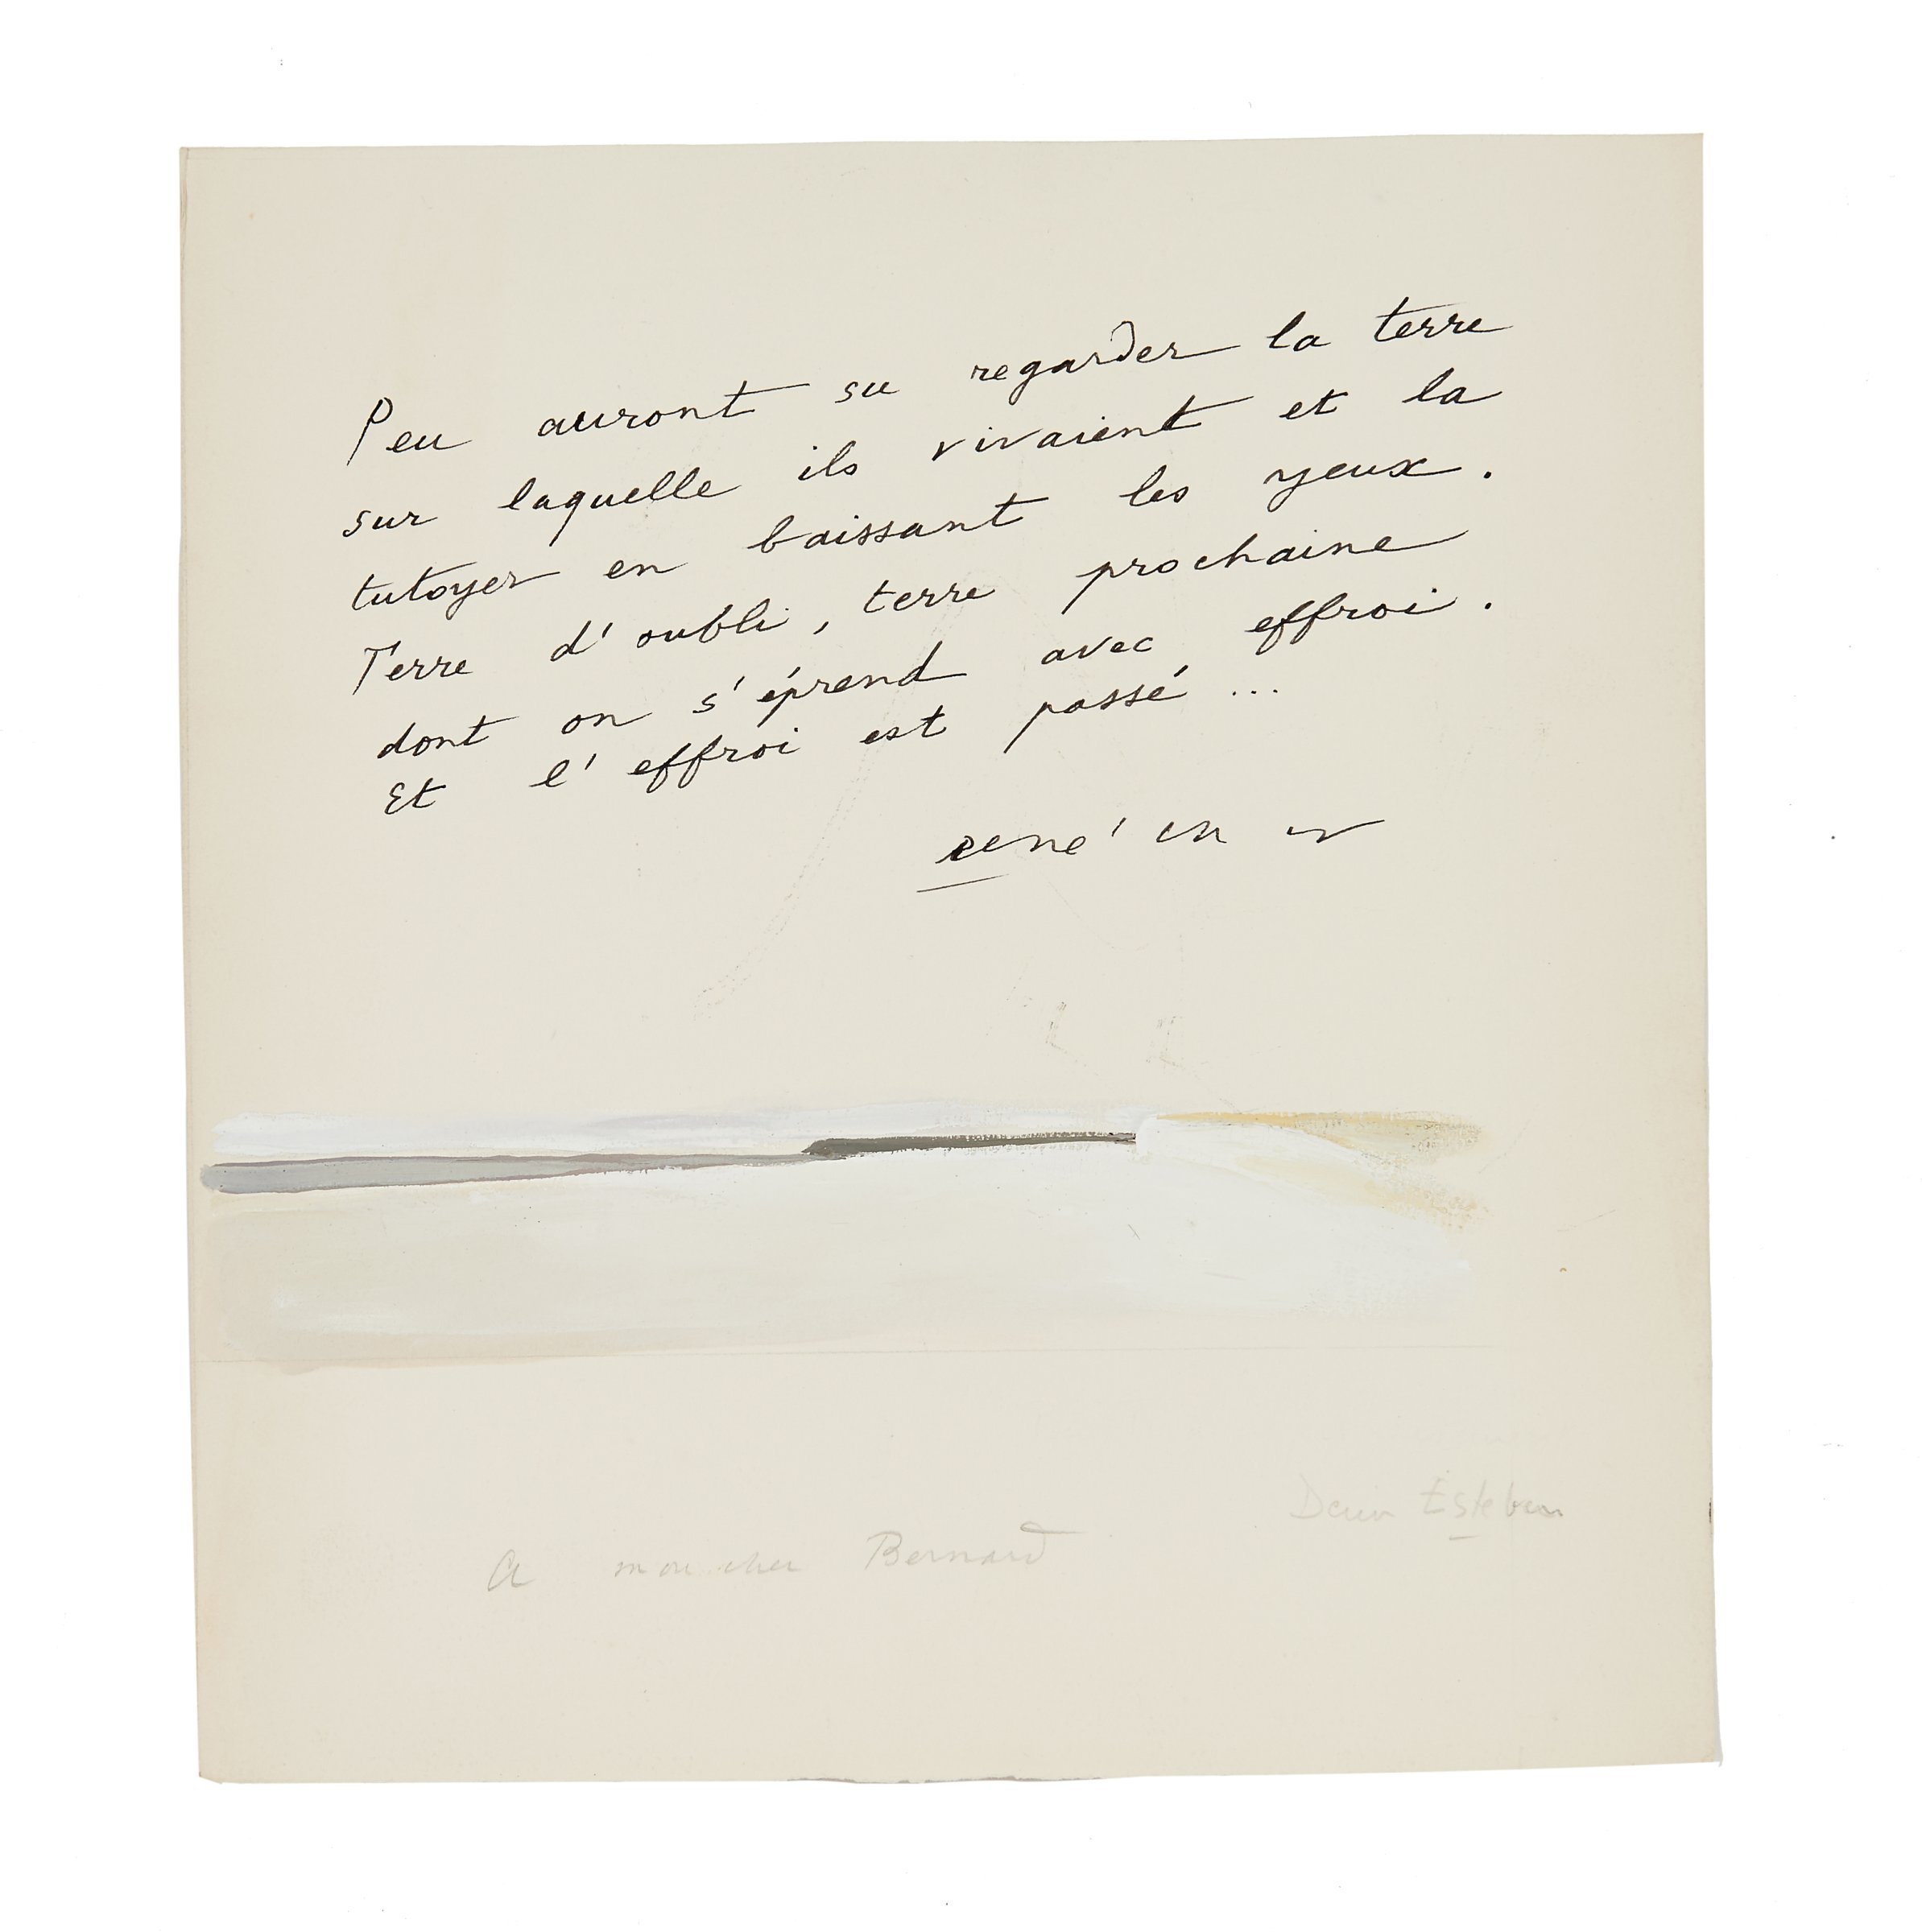 Peu auront su regarder la terre
sur laquelle ils vivaient et la
tutoyer en baissant les yeux.
Terre d'oubli, terre prochaine
dont on s'éprend avec effroi.
Et l'effroi est passé ...
René
Denis Esteban
A mon cher Bernard